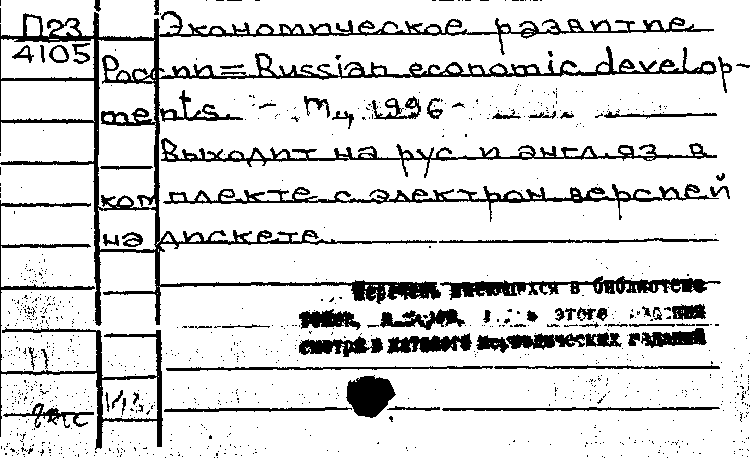 П23 Экономическое развитие
4105 России = Russian economic develop-
ments. - М., 1996-
Выходит на рус. и англ. яз. в
комплекте с электрон. версией
на дискете.
Перечень имеющихся в библиотеке
томов, этого издания
смотри в каталоге периодических изданий